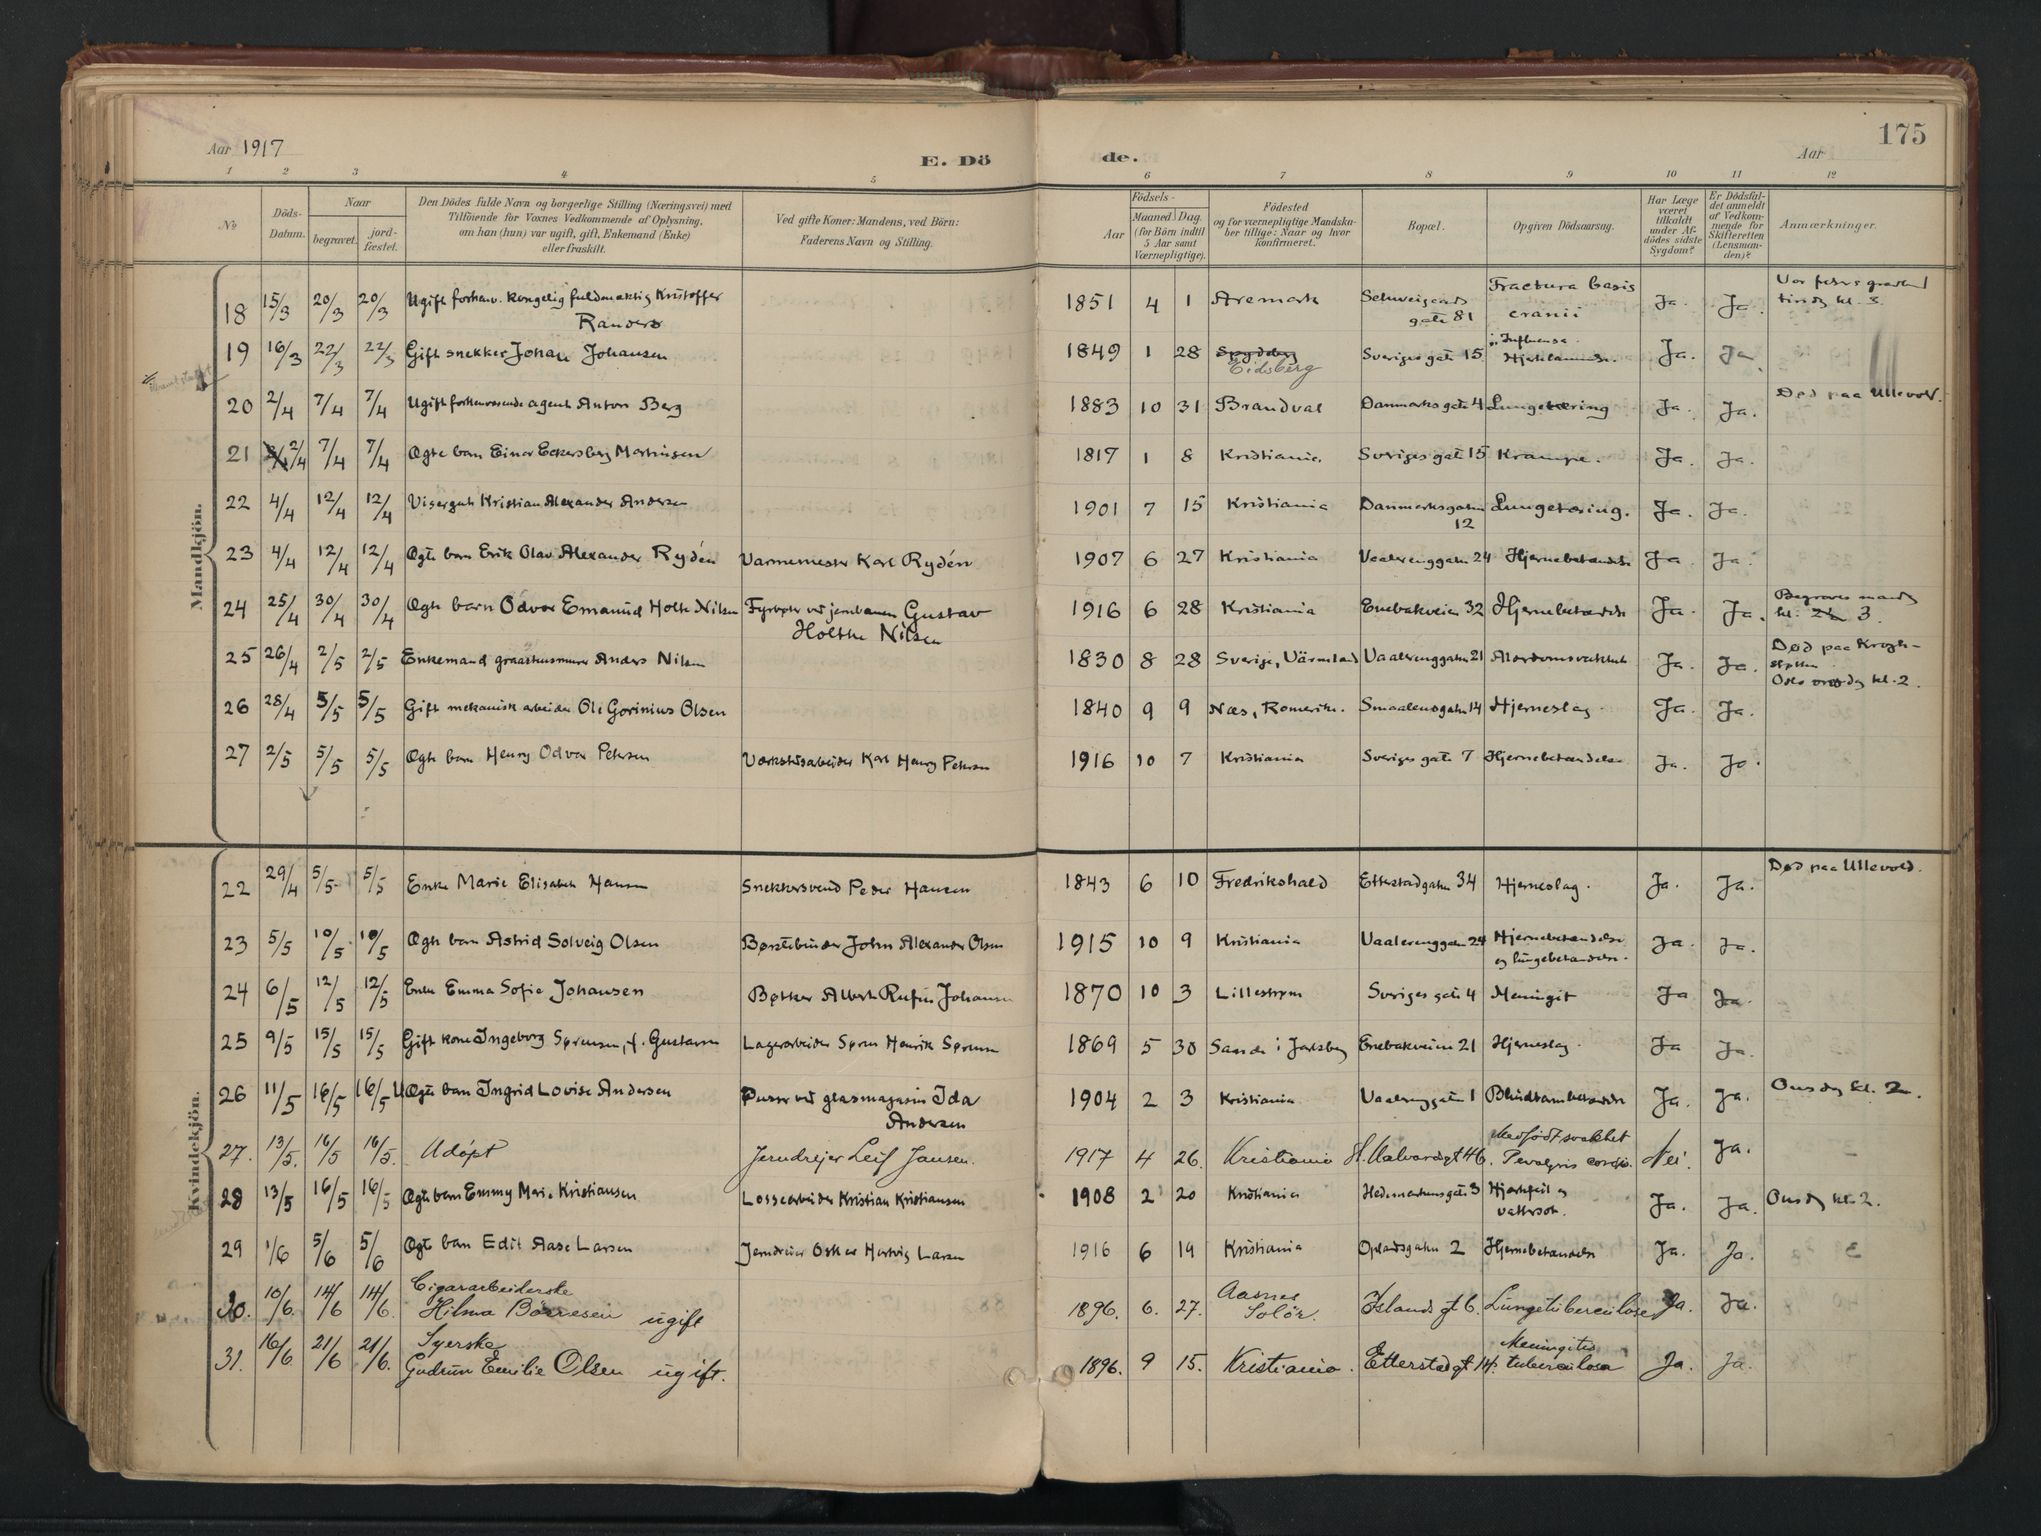 Aar 1917
E. Döde.
175
Aar
1 2 3 4 5 6 7 8 9 10 11 12
No. Döds-Datum. Naar begravet. jordfæstet. Den Dödes fulde Navn og borgerlige Stilling (Næringsvei) med Tilföiende for Voxnes Vedkommende af Oplysning, om han (hun) var ugift, gift, Enkemand (Enke) eller fraskilt. Ved gifte Koner: Mandens, ved Börn: Faderens Navn og Stilling. Födsels- Aar Maaned. Dag. (for Börn indtil 5 Aar samt Værnepligtige). Födested og for værnepligtige Mandskaber tillige: Naar og hvor konfirmeret. Bopæl. Opgiven Dödsaarsag. Har Læge været tilkaldt under Afdödes sidste Sygdom? Er Dödsfaldet anmeldt af Vedkommende for Skifteretten (Lensmanden)? Anmærkninger.
Mandkjön.
18 15/3 20/3 20/3 Ugift forhenv. kongelig fuldmæktig Kristoffer Randers 1851 4 1 Aremark Schweigaards gate 81 Fractura basis cranii Ja. Ja.
19 16/3 22/3 22/3 Gift snekker Johan Johansen 1849 1 28 Spydeberg Eidsberg Sveriges gate 15 Influensa. Ja. Ja
20 2/4 7/4 7/4 Ugift forhenværende agent Anton Berg 1883 10 31 Brandval Danmarks gate 4 Lungetæring Ja. Ja. Død paa Ullevold.
21 2/4 7/4 7/4 Ægte barn Einar Eckersberg Martinsen 1817 1 8 Kristiania. Sveriges gate 15 Krampe. Ja. Ja.
22 4/4 12/4 12/4 Visergut Kristian Alexander Andersen 1901 7 15 Kristiania Danmarksgaten 12 Lungetæring. Ja. Ja.
23 4/4 12/4 12/4 Ægte barn Erik Olav Alexander Rydén Varmemester Karl Rydén 1907 6 27 Kristiania Vaalerenggaten 24 Hjernebetændelse Ja Ja.
24 25/4 30/4 30/4 Ægte barn Odvar Emanuel Holth Nilsen Fyrbøter ved jernbanen Gustav Holthe Nilsen 1916 6 28 Kristiania Enebakveien 32 Hjernebetændelse Ja. Ja. Begraves mandag kl. 3.
25 26/4 2/5 2/5 Enkemand Anders Nilsen 1830 8 28 Sverige, Värmland Vaalerenggaten 21 Alderdomssvakhet Ja. Ja. Død paa Krogh-støtten Oslo onsdag kl. 2.
26 28/4 5/5 5/5 Gift mekanisk arbeider Ole Gorinius Olsen 1840 9 9 Næs, Romerike. Smaalensgaten 14 Hjerneslag. Ja. Ja.
27 2/5 5/5 5/5 Ægte barn Henry Odvar Petersen Verkstedsarbeider Karl Henry Petersen 1916 10 7 Kristiania Sveriges gate 7 Hjernebetændelse Ja. Ja.
Kvindekjön.
22 29/4 5/5 5/5 Enke Marie Elisabeth Hansen Snekkersvend Peder Hansen 1843 6 10 Fredrikshald Etterstadgaten 34 Hjerneslag. Ja. Ja. Død paa Ullevold.
23 5/5 10/5 10/5 Ægte barn Astrid Solveig Olsen Børstebinder John Alexander Olsen 1915 10 9 Kristiania Vaalerenggaten 24 Hjernebetændelse og lungebetændelse. Ja. Ja.
24 6/5 12/5 12/5 Enke Emma Sofie Johansen Bøtker Albert Rufus Johansen 1870 10 3 Lillestrøm Sveriges gate 4 Meningit Ja Ja.
25 9/5 15/5 15/5 Gift kone Ingeborg Sørensen, f. Gustavsen Lagerarbeider Søren Henrik Sørensen 1869 5 30 Sande i Jarlsberg Enebakveien 21 Hjerneslag. Ja Ja.
26 11/5 16/5 16/5 Uægte barn Ingrid Lovise Andersen Pusser ved glasmagasin Ida Andersen 1904 2 3 Kristiania Vaalerenggaten 1 Blindtarmbetændelse Ja. Ja. Onsdag kl. 2.
27. 13/5. 16/5 16/5. Udöpt Jerndrejer Leif Jansen. 1917 4 26. Kristiania H. Halvardsgt 46. Medfödt svakhet Nei. Ja.
28 13/5 16/5 16/5 Ægte barn Emmy Marie Kristiansen Lossearbeider Kristian Kristiansen 1908 2 20 Kristiania Hedemarkensgate 3 Hjertefeil og vattersot. Ja. Ja. Onsdag kl. 2.
29 1/6 5/6 5/6 Ægte barn Edit Aase Larsen Jerndreier Oskar Hartvig Larsen 1916 6 19 Kristiania Oplandsgaten 2 Hjernebetændelse Ja. Ja.
30. 10/6. 14/6 14/6. Cigararbeiderske Hilma Börresen ugift 1896. 6. 27. Aasnes Solör. Islands gt 6. Lungetuberculose Ja. Ja.
31. 16/6 21/6 21/6. Syerske Gudrun Emilie Olsen ugift. 1896. 9 15. Kristiania. Etterstadgt 14. Meningitis tuberculosa Ja. Ja.